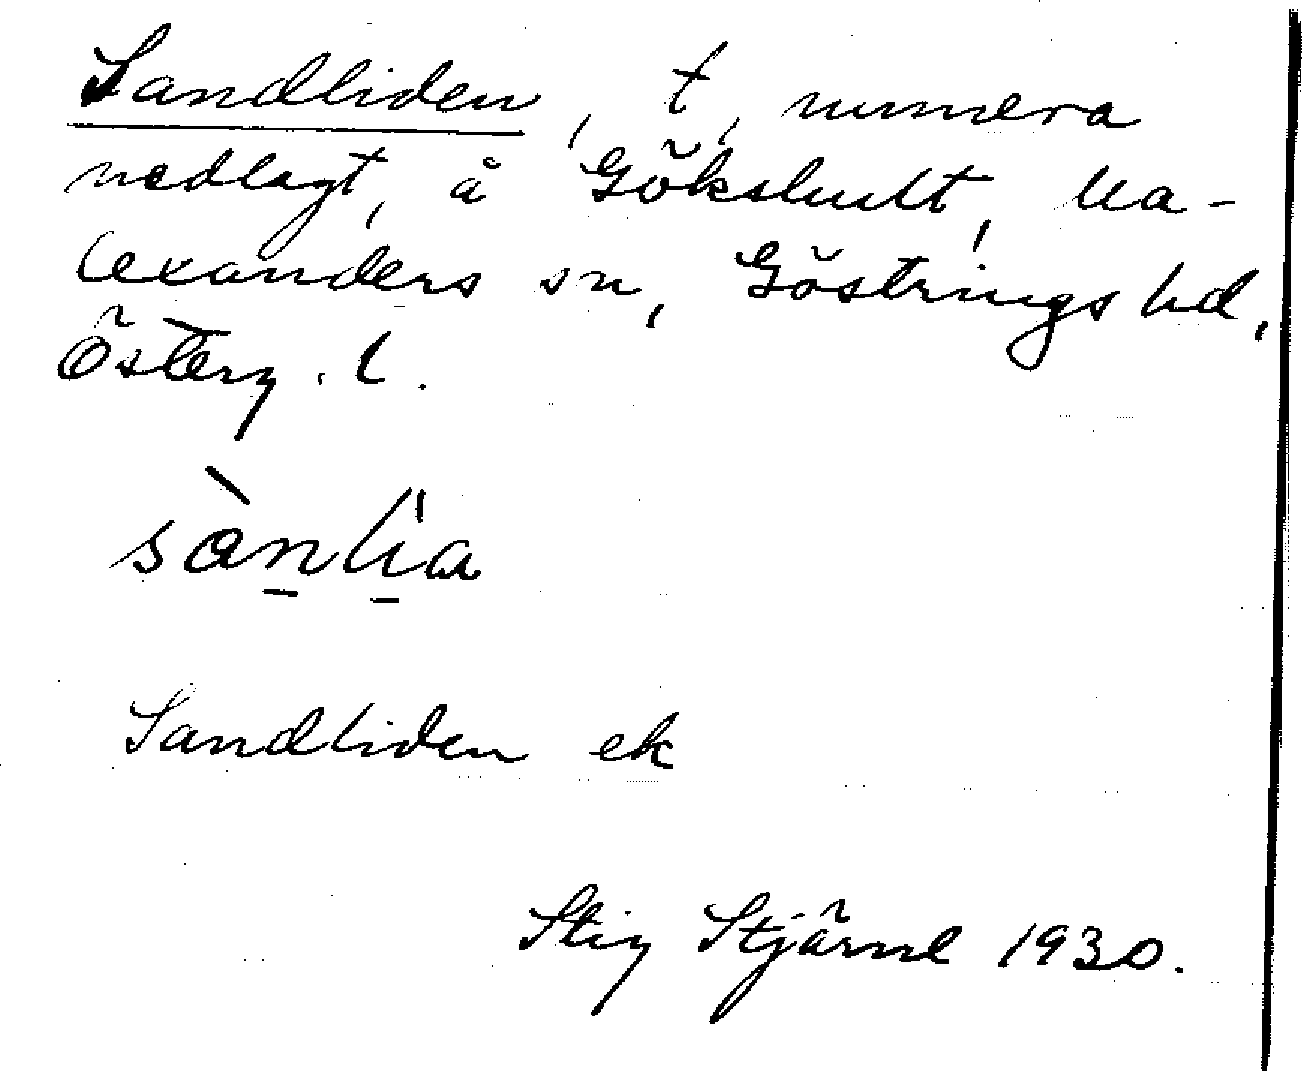 Sandliden, t, numera
nedlagt, å Gökshult, Ua-
lexanders sn, Göstrings hd,
Österg. l.
sànlia
Sandliden ek
Stig Stjärne 1930.